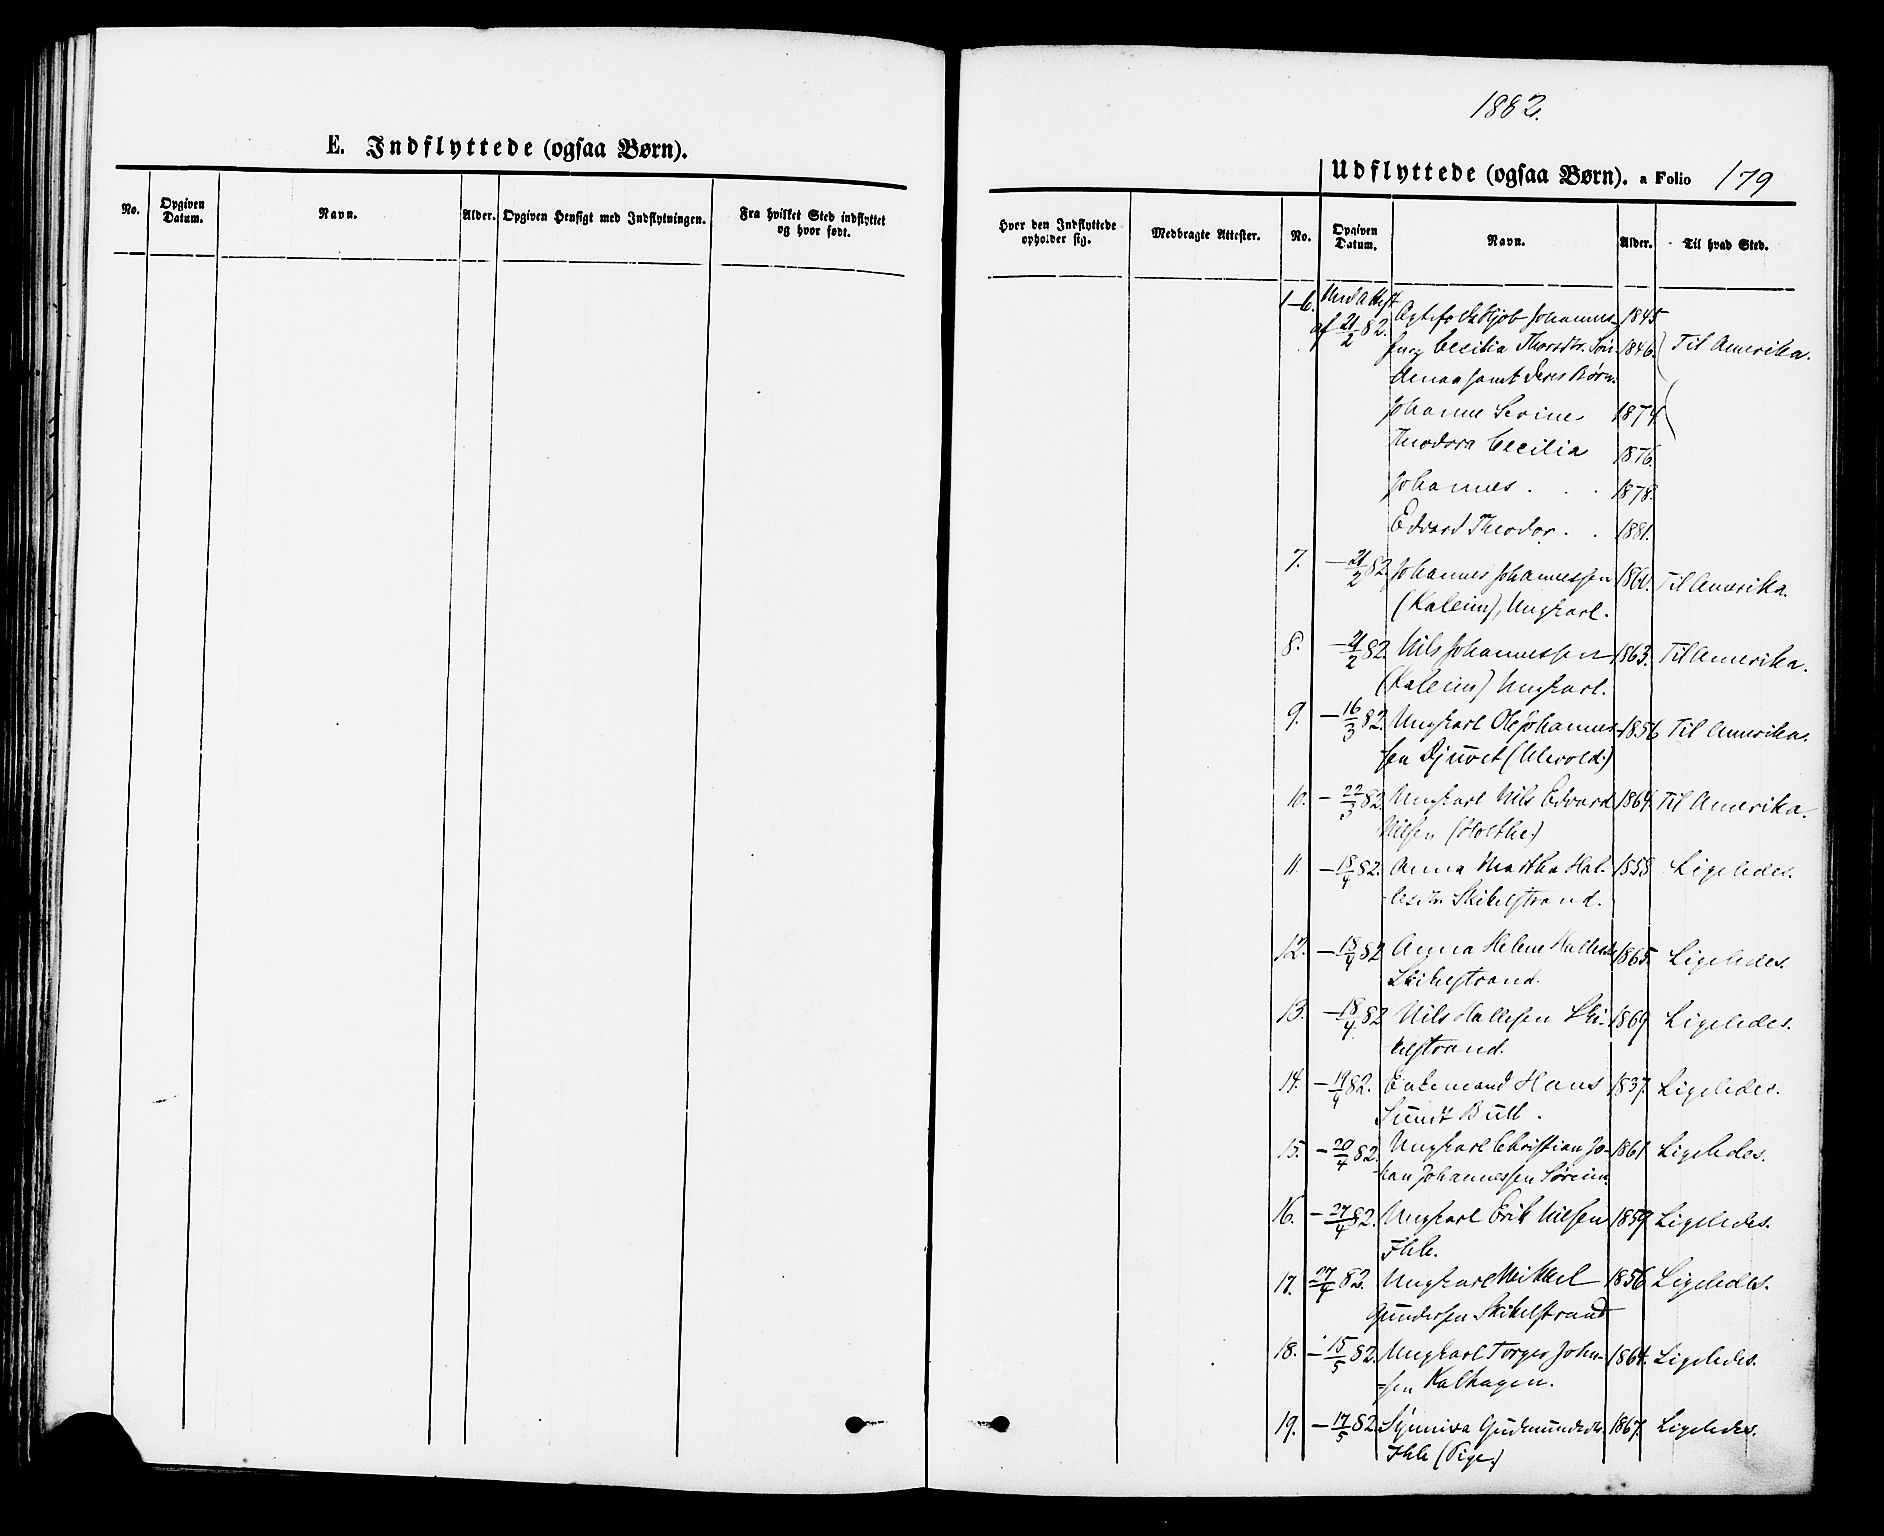 E. Indflyttede (ogsaa Børn).
No.
Opgiven Datum.
Navn.
Alder.
Opgiven Hensigt med Indflytningen.
Fra hvilket Sted indflyttet og hvor født.
1882.
Udflyttede (ogsaa Børn). a Folio 179
Hvor den Indflyttede opholder sig.
Medbragte Attester.
No.
Opgiven Datum.
Navn.
Alder.
Til hvad Sted.
1-6. Johannes- 1845
af 21/2 82. Cecilia 1846. Til Amerika.
samt deres Børn
Johanne Serine 1874.
Theodora Cecilia 1876.
Johannes . . 1878.
Edvard Theodor . . 1881.
7. – 21/2 82. Johannes Johannessen Til Amerika.
(Kaleim), Ungkarl.
8. – 21/2 82. Nils Johannessen 1863. Til Amerika.
(Kaleim) Ungkarl.
9. – 16/3 82. Ungkarl Ole Johannes- 1856 Til Amerika.
sen Djuvet (Ulevold.)
10. – 22/3 82. Ungkarl Nils Edvard 1864. Til Amerika.
Nilsen (Holthe.)
11. – 18/4 82. Anna Martha Hal- 1858 Ligeledes.
lesdtr. Skikelstrand.
12. – 18/4 82 Anna Helene 1865. Ligeledes.
Skikelstrand.
13. – 18/4 82 Nils Hallesen Ski- 1869 Ligeledes.
kelstrand.
14. – 19/4 82. Enkemand Hans 1837. Ligeledes.
Sundt Bull.
15. – 20/4 82. Ungkarl Christian Jo- 1861 Ligeledes.
han Johannessen Søreim.
16. – 27/4 82. Ungkarl Erik Nilsen 1859 Ligeledes.
Ihle.
17. – 27/4 82. Ungkarl Mikkel 1856 Ligeledes.
Gundersen Skikelstrand
18. – 15/5 82. Ungkarl Torger John- 1864. Ligeledes.
-sen Kalhagen.
19. – 17/5 82. Synniva Gudmundsdtr. 1867. Ligeledes.
Ihle (Pige.)